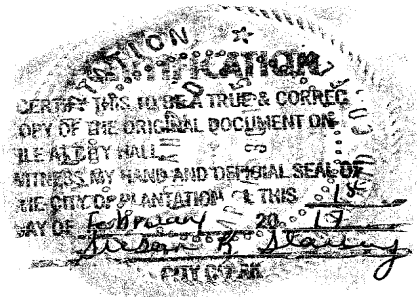 CERTIFICATION
CERTIFY THIS TO BE A TRUE & CORREC
OPY OF THE ORIGINAL DOCUMENT ON
ILE AT CITY HALL
WITNESS MY HAND AND OFFICIAL SEAL OF
THE CITY OF PLANTATION THIS 14
DAY OF February 20 17
Susan K Slattery
CITY CLERK